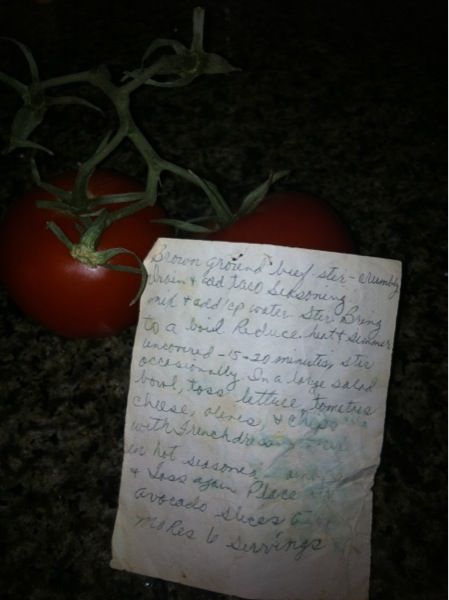 Brown ground beef stir - crumbly
Drain & add Taco Seasoning
& add cp water Stir Bring
to a boil Reduce heat & simmer
uncovered - 15-20 minutes, stir
occasionally. In a large salad
bowl, toss lettuce, tomatoes
cheese, olives, & chips
with French dress
hot seasoned
& Toss again Place
avocado slices
Makes 6 servings